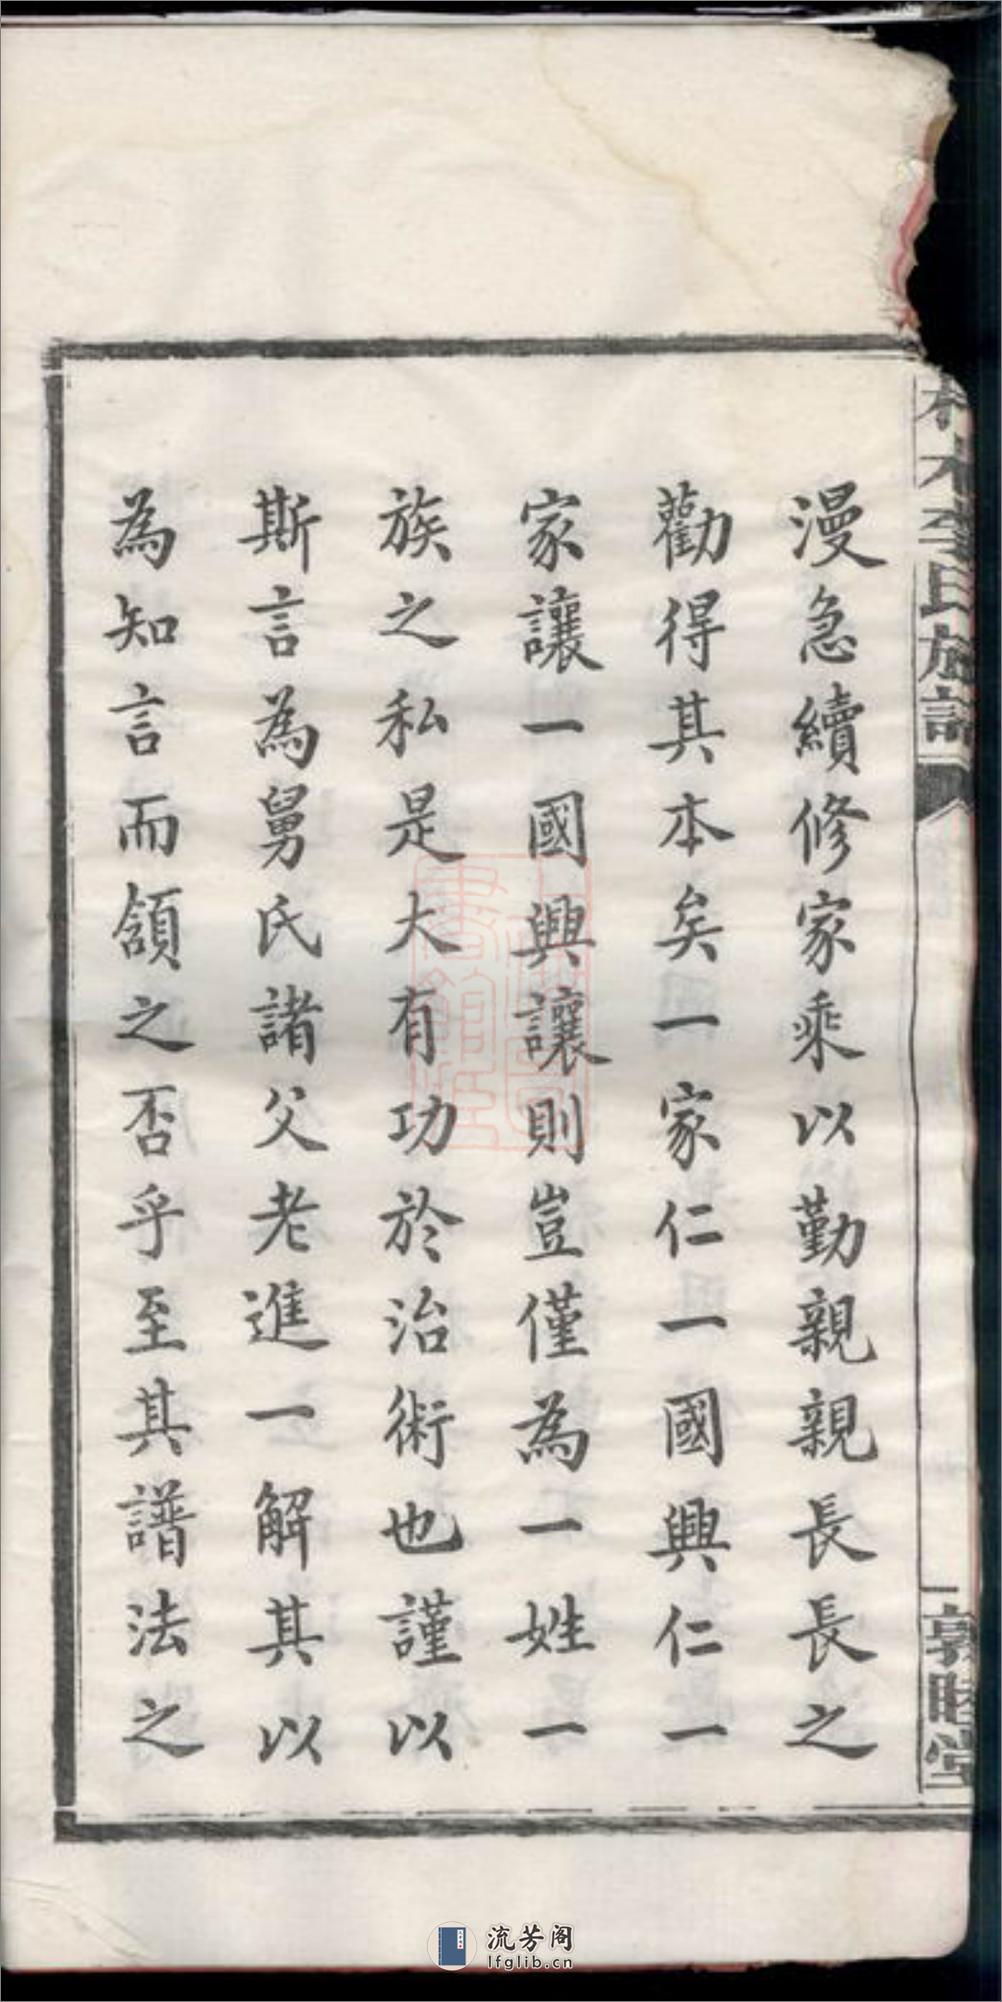 漫急續修家乘以勤親親長長之
勸得其本矣一家仁一國興仁一
家讓一國興讓則豈僅為一姓一
族之私是大有功於治術也謹以
斯言為舅氏諸父老進一解其以
為知言而頷之否乎至其譜法之
木李氏族譜
一
敦睦堂
流芳阁
lfglib.cn